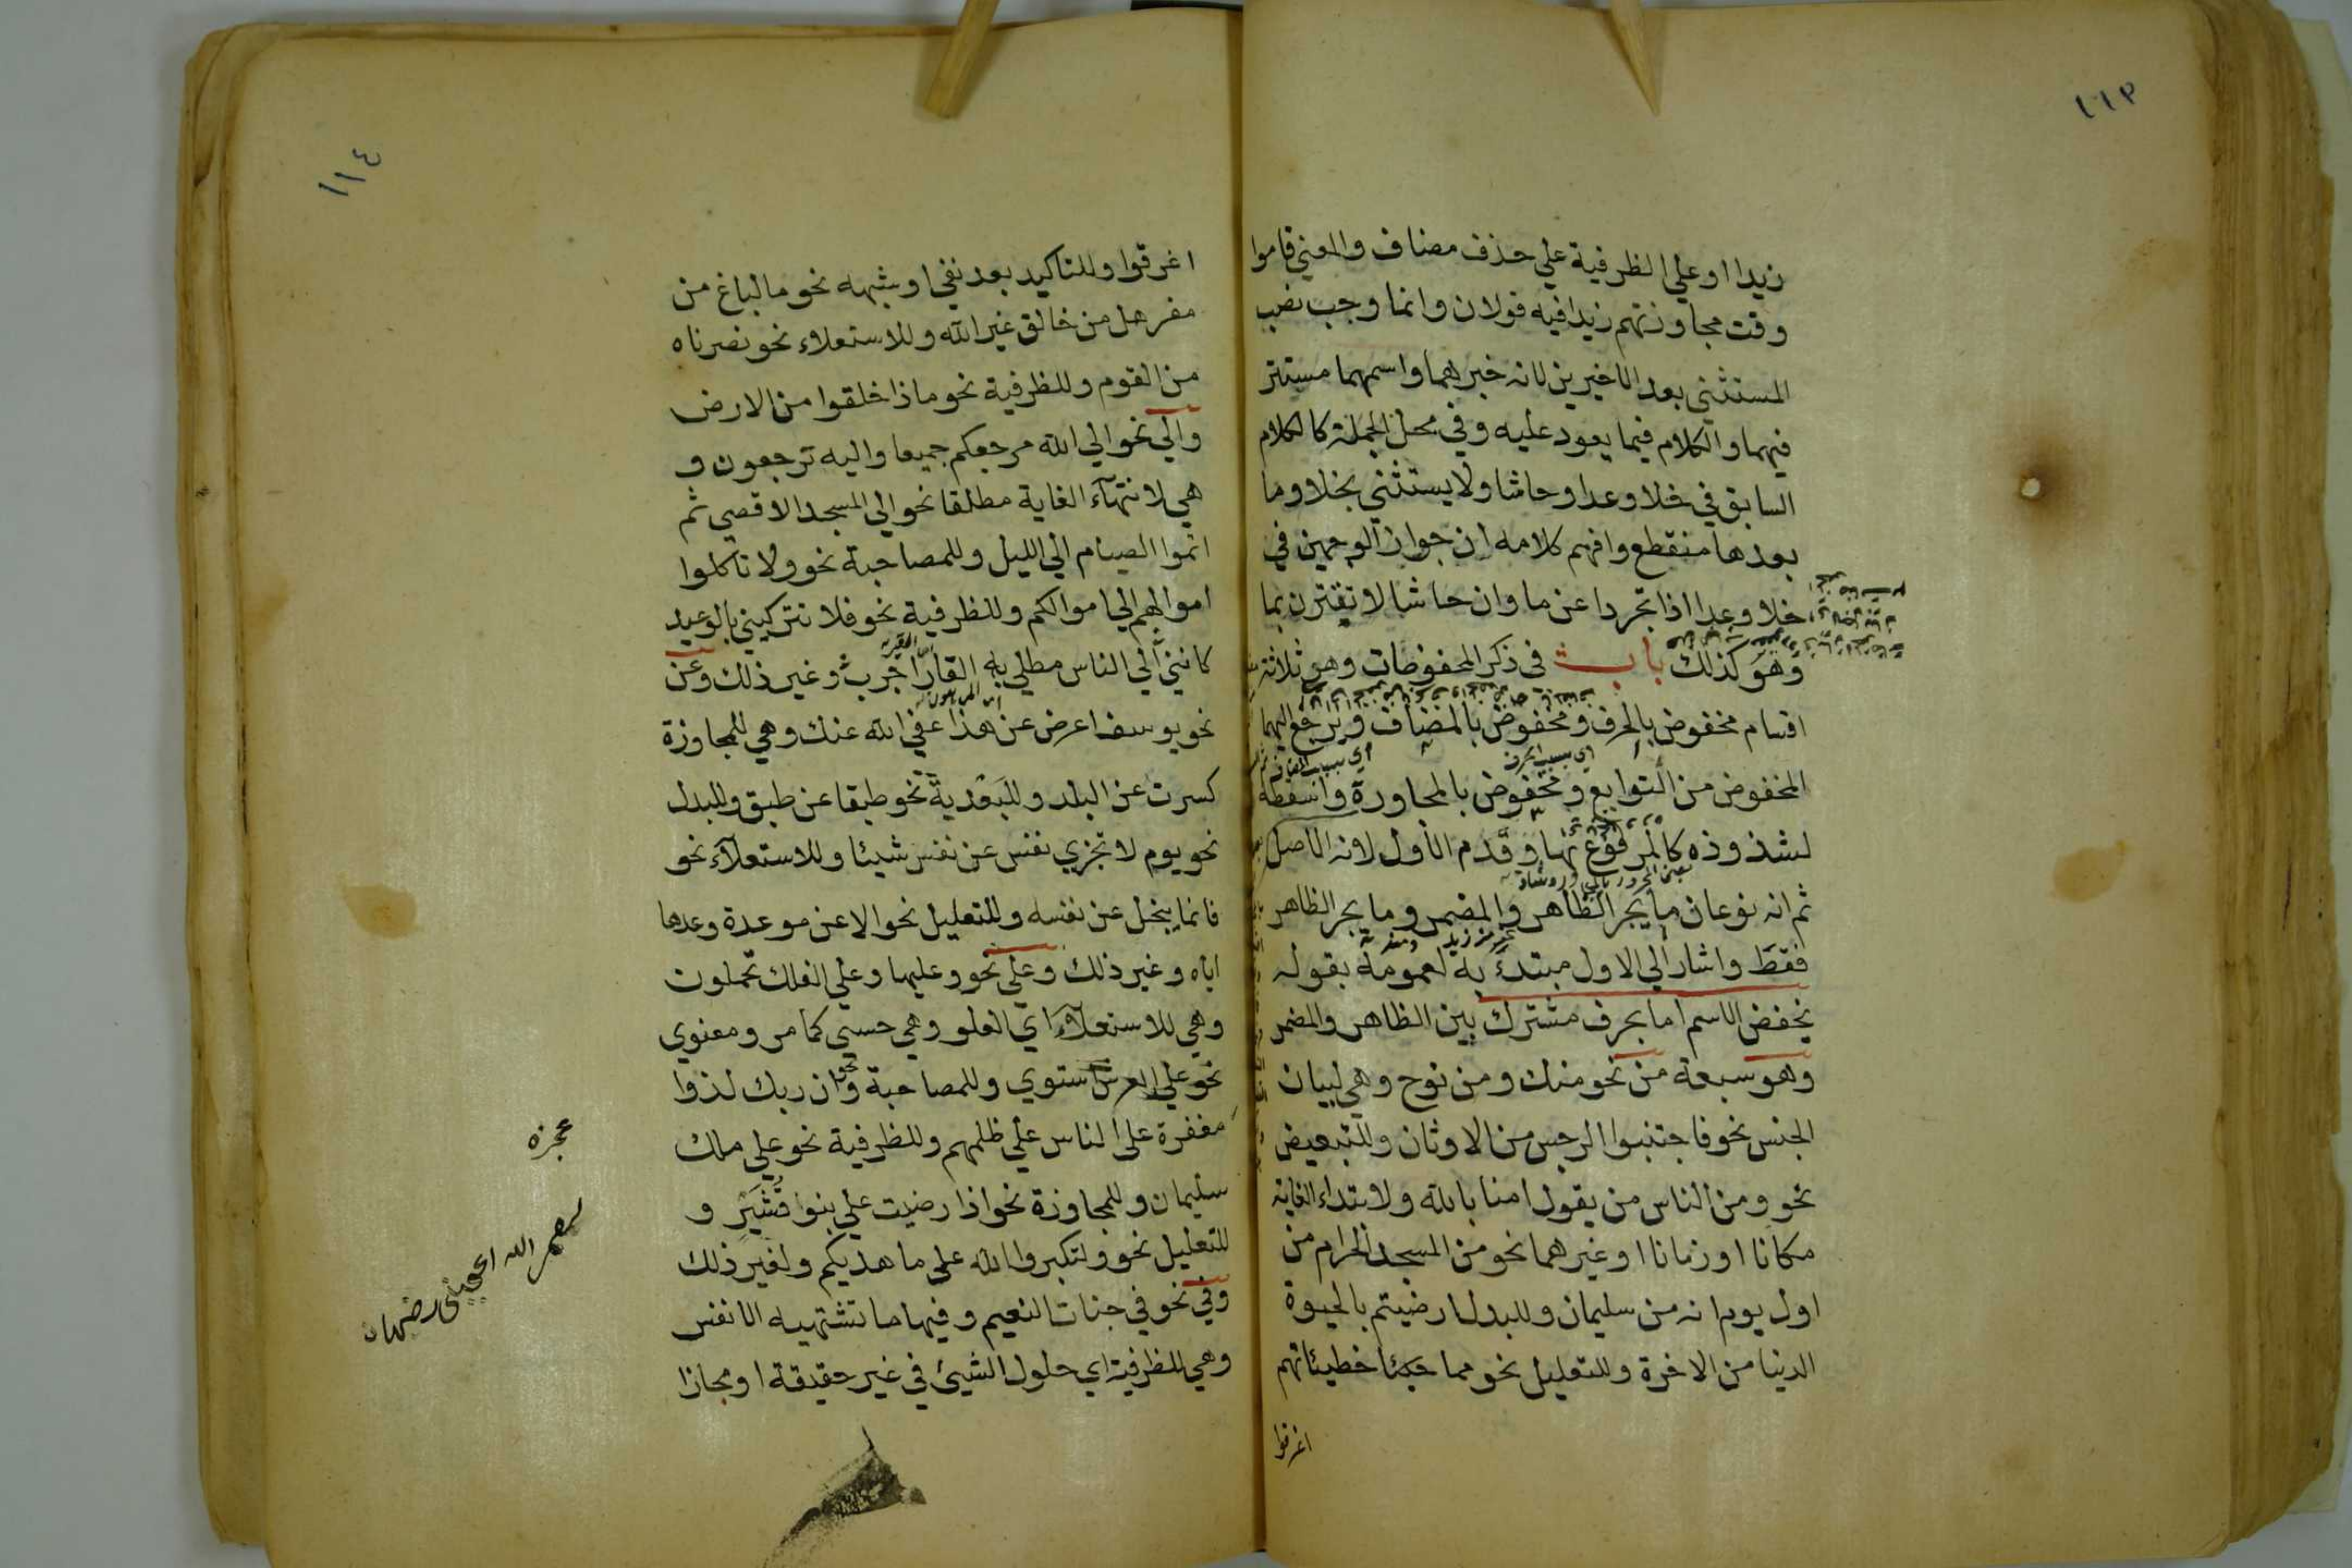 ١١٣
زيدا او علي الظرفية علي حذف مضاف والمعني قاموا
وقت مجاوزتهم زيدا فيه قولان وانما وجب نصب
المستثني بعد الاخيرين لانه خبرهما واسمهما مستتر
فيهما والكلام فيما يعود عليه وفي محل الجملة كالكلام
السابق في خلا وعدا وحاشا ولا يستثني بخلا وما
بعدها منقطع وافهم كلامه ان جواز الوجهين في
خلا وعدا اذا تجردا عن ما وان حاشا لا تقترن بما
وهو كذلك باب في ذكر المخفوضات وهو ثلاثة
اقسام مخفوض بالحرف ومخفوض بالمضاف ويرجع اليهما
اي بسبب الحرف
المخفوض من التوابع ومخفوض بالمجاورة واسقطه
لشذوذه كالمرفوع بها وقدم الاول لانه الاصل
ثم انه نوعان ما يجر الظاهر والمضمر وما يجر الظاهر
فقط واشار الي الاول مبتدئ به لعمومه بقوله
يخفض الاسم اما بحرف مشترك بين الظاهر والمضمر
وهو سبعة من نحو منك ومن نوح وهي لبيان
الجنس نحو فاجتنبوا الرجس من الاوثان وللتبعيض
نحو ومن الناس من يقول امنا بالله ولابتداء الغاية
مكانا او زمانا او غيرهما نحو من المسجد الحرام من
اول يوم انه من سليمان وللبدل ارضيتم بالحيوة
الدنيا من الاخرة وللتعليل نحو مما خطيئاتهم
اغرقوا
١١٤
اغرقوا وللتاكيد بعد نفي او شبهه نحو ما لباغ من
مفر هل من خالق غير الله وللاستعلاء نحو نصرناه
من القوم وللظرفية نحو ماذا خلقوا من الارض
والي نحو الي الله مرجعكم جميعا واليه ترجعون و
هي لانتهآء الغاية مطلقا نحو الي المسجد الاقصي ثم
اتموا الصيام الي الليل وللمصاحبة نحو ولا تاكلوا
اموالهم الي اموالكم وللظرفية نحو فلا تتركيني بالوعيد
كانني الي الناس مطلي به القار اجرب وغير ذلك وعن
نحو يوسف اعرض عن هذا عفي الله عنك وهي للمجاوزة
كسرت عن البلد وللبعدية نحو طبقا عن طبق وللبدل
نحو يوم لا تجزي نفس عن نفس شيئا وللاستعلآء نحو
فانما يبخل عن نفسه وللتعليل نحو الا عن موعدة وعدها
اياه وغير ذلك وعلي نحو وعليها وعلي الفلك تحملون
وهي للاستعلآء اي العلو وهي حسي كما مر ومعنوي
نحو علي العرش استوي وللمصاحبة نحو وان ربك لذوا
مغفرة علي الناس علي ظلمهم وللظرفية نحو علي ملك
سليمان وللمجاوزة نحو اذا رضيت علي بنوا قشير و
للتعليل نحو ولتكبروا الله علي ما هديكم ولغير ذلك
وفي نحو في جنات النعيم وفيها ما تشتهيه الانفس
وهي للظرفية اي حلول الشيئ في غير حقيقة او مجازا
عجزه
لعمر الله اعجبني رضاها